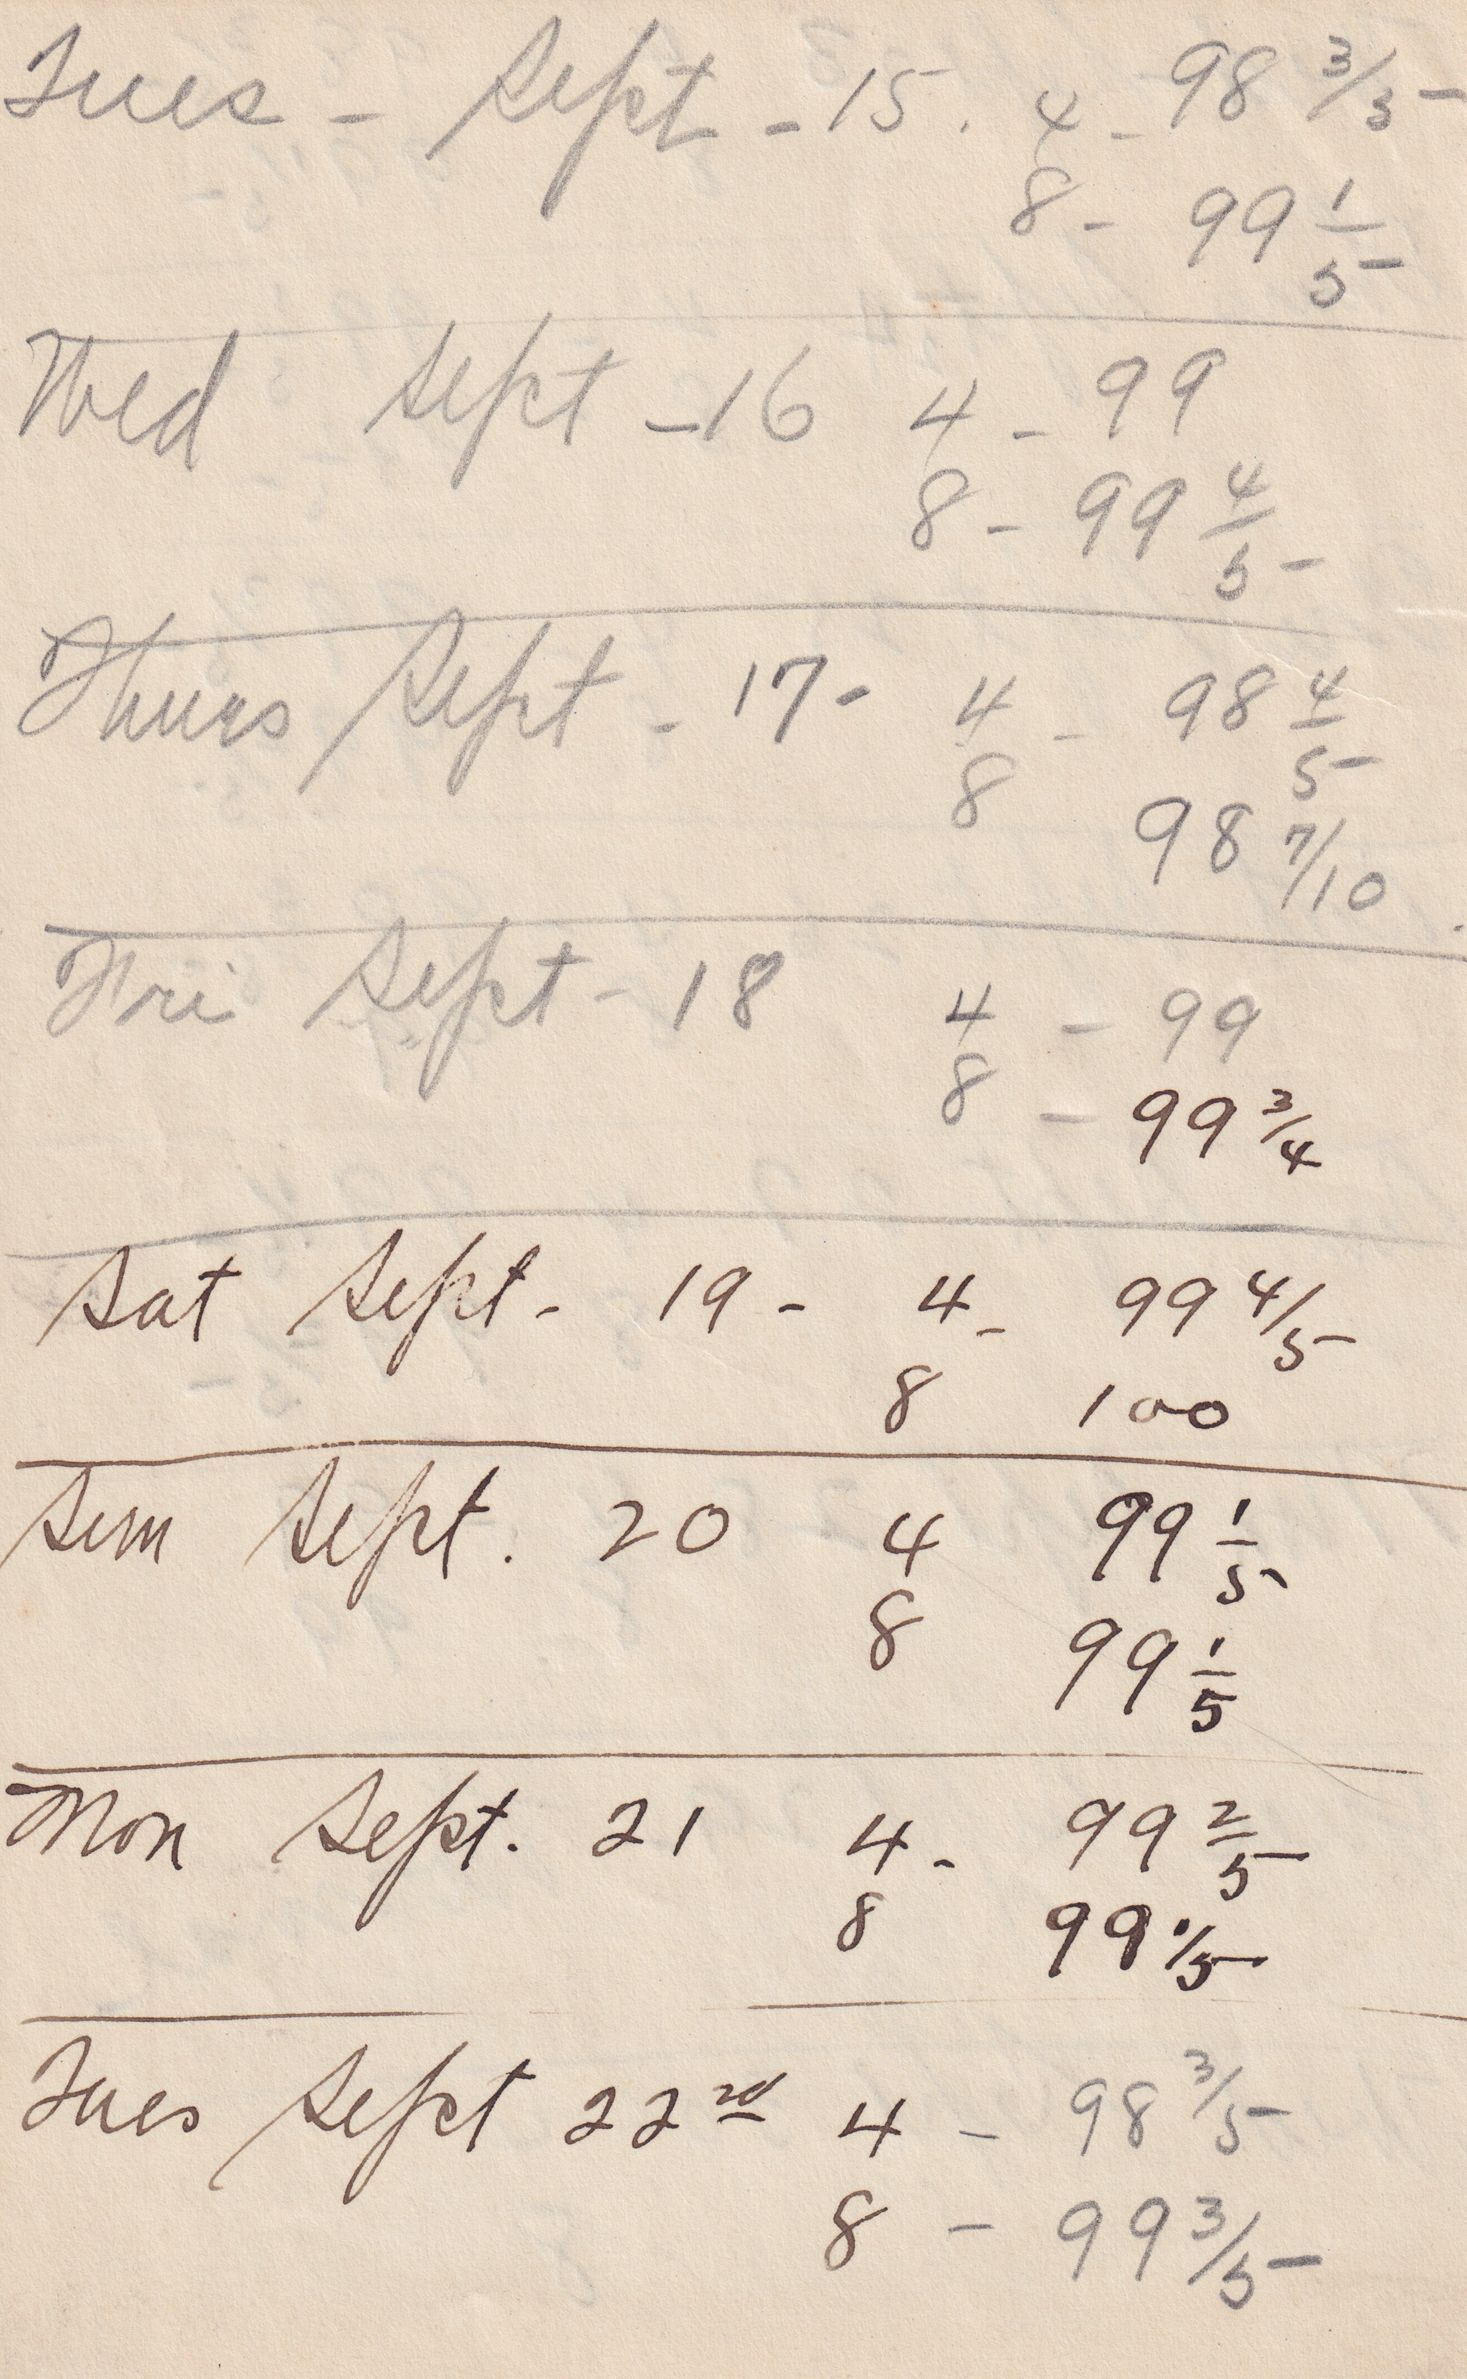 Tues - Sept - 15. 4 - 98 3/5
8 - 99 1/5
Wed Sept - 16 4 - 99
8 - 99 4/5
Thurs Sept - 17 - 4 - 98 4/5
8 98 7/10
Fri Sept - 18 4 - 99
8 - 99 3/4
Sat Sept - 19 - 4 - 99 4/5
8 100
Sun Sept. 20 4 99 1/5
8 99 1/5
Mon Sept. 21 4 - 99 2/5
8 99 1/5
Tues Sept 22nd 4 - 98 3/5
8 - 99 3/5